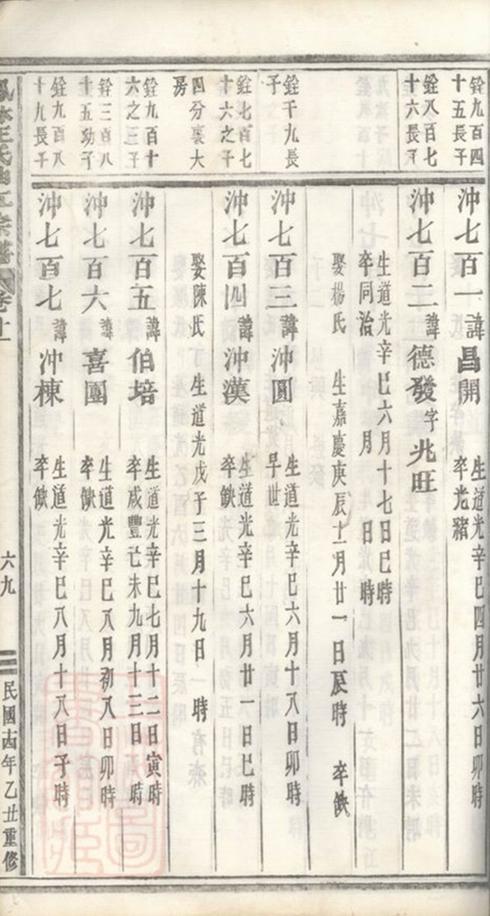 銓九百四
十五長子
沖七百一 諱昌開
生道光辛巳六月十八日卯時
銓八百七
十六長子
沖七百二 諱德發 字兆旺
生道光辛巳六月十七日巳時
卒同治 月 日 時
娶楊氏 生嘉慶庚辰十一月廿一日辰時 卒缺
銓千九長
子
沖七百三 諱沖圓
生道光辛巳六月十八日卯時
早世
銓七百七
十六之子
沖七百四 諱沖漢
生道光辛巳六月廿一日巳時
卒缺
四分裏大
房
娶陳氏 生道光戊子三月十九日 時
銓九百十
六之三子
沖七百五 諱伯培
生道光辛巳七月十二日寅時
卒咸豐己未九月十三日 時
銓三百八
十五幼子
沖七百六 諱喜團
生道光辛巳八月初八日卯時
卒缺
銓九百八
十九長子
沖七百七 諱沖棟
生道光辛巳八月十八日子時
卒缺
卷十一
六九
民國十四年乙丑重修